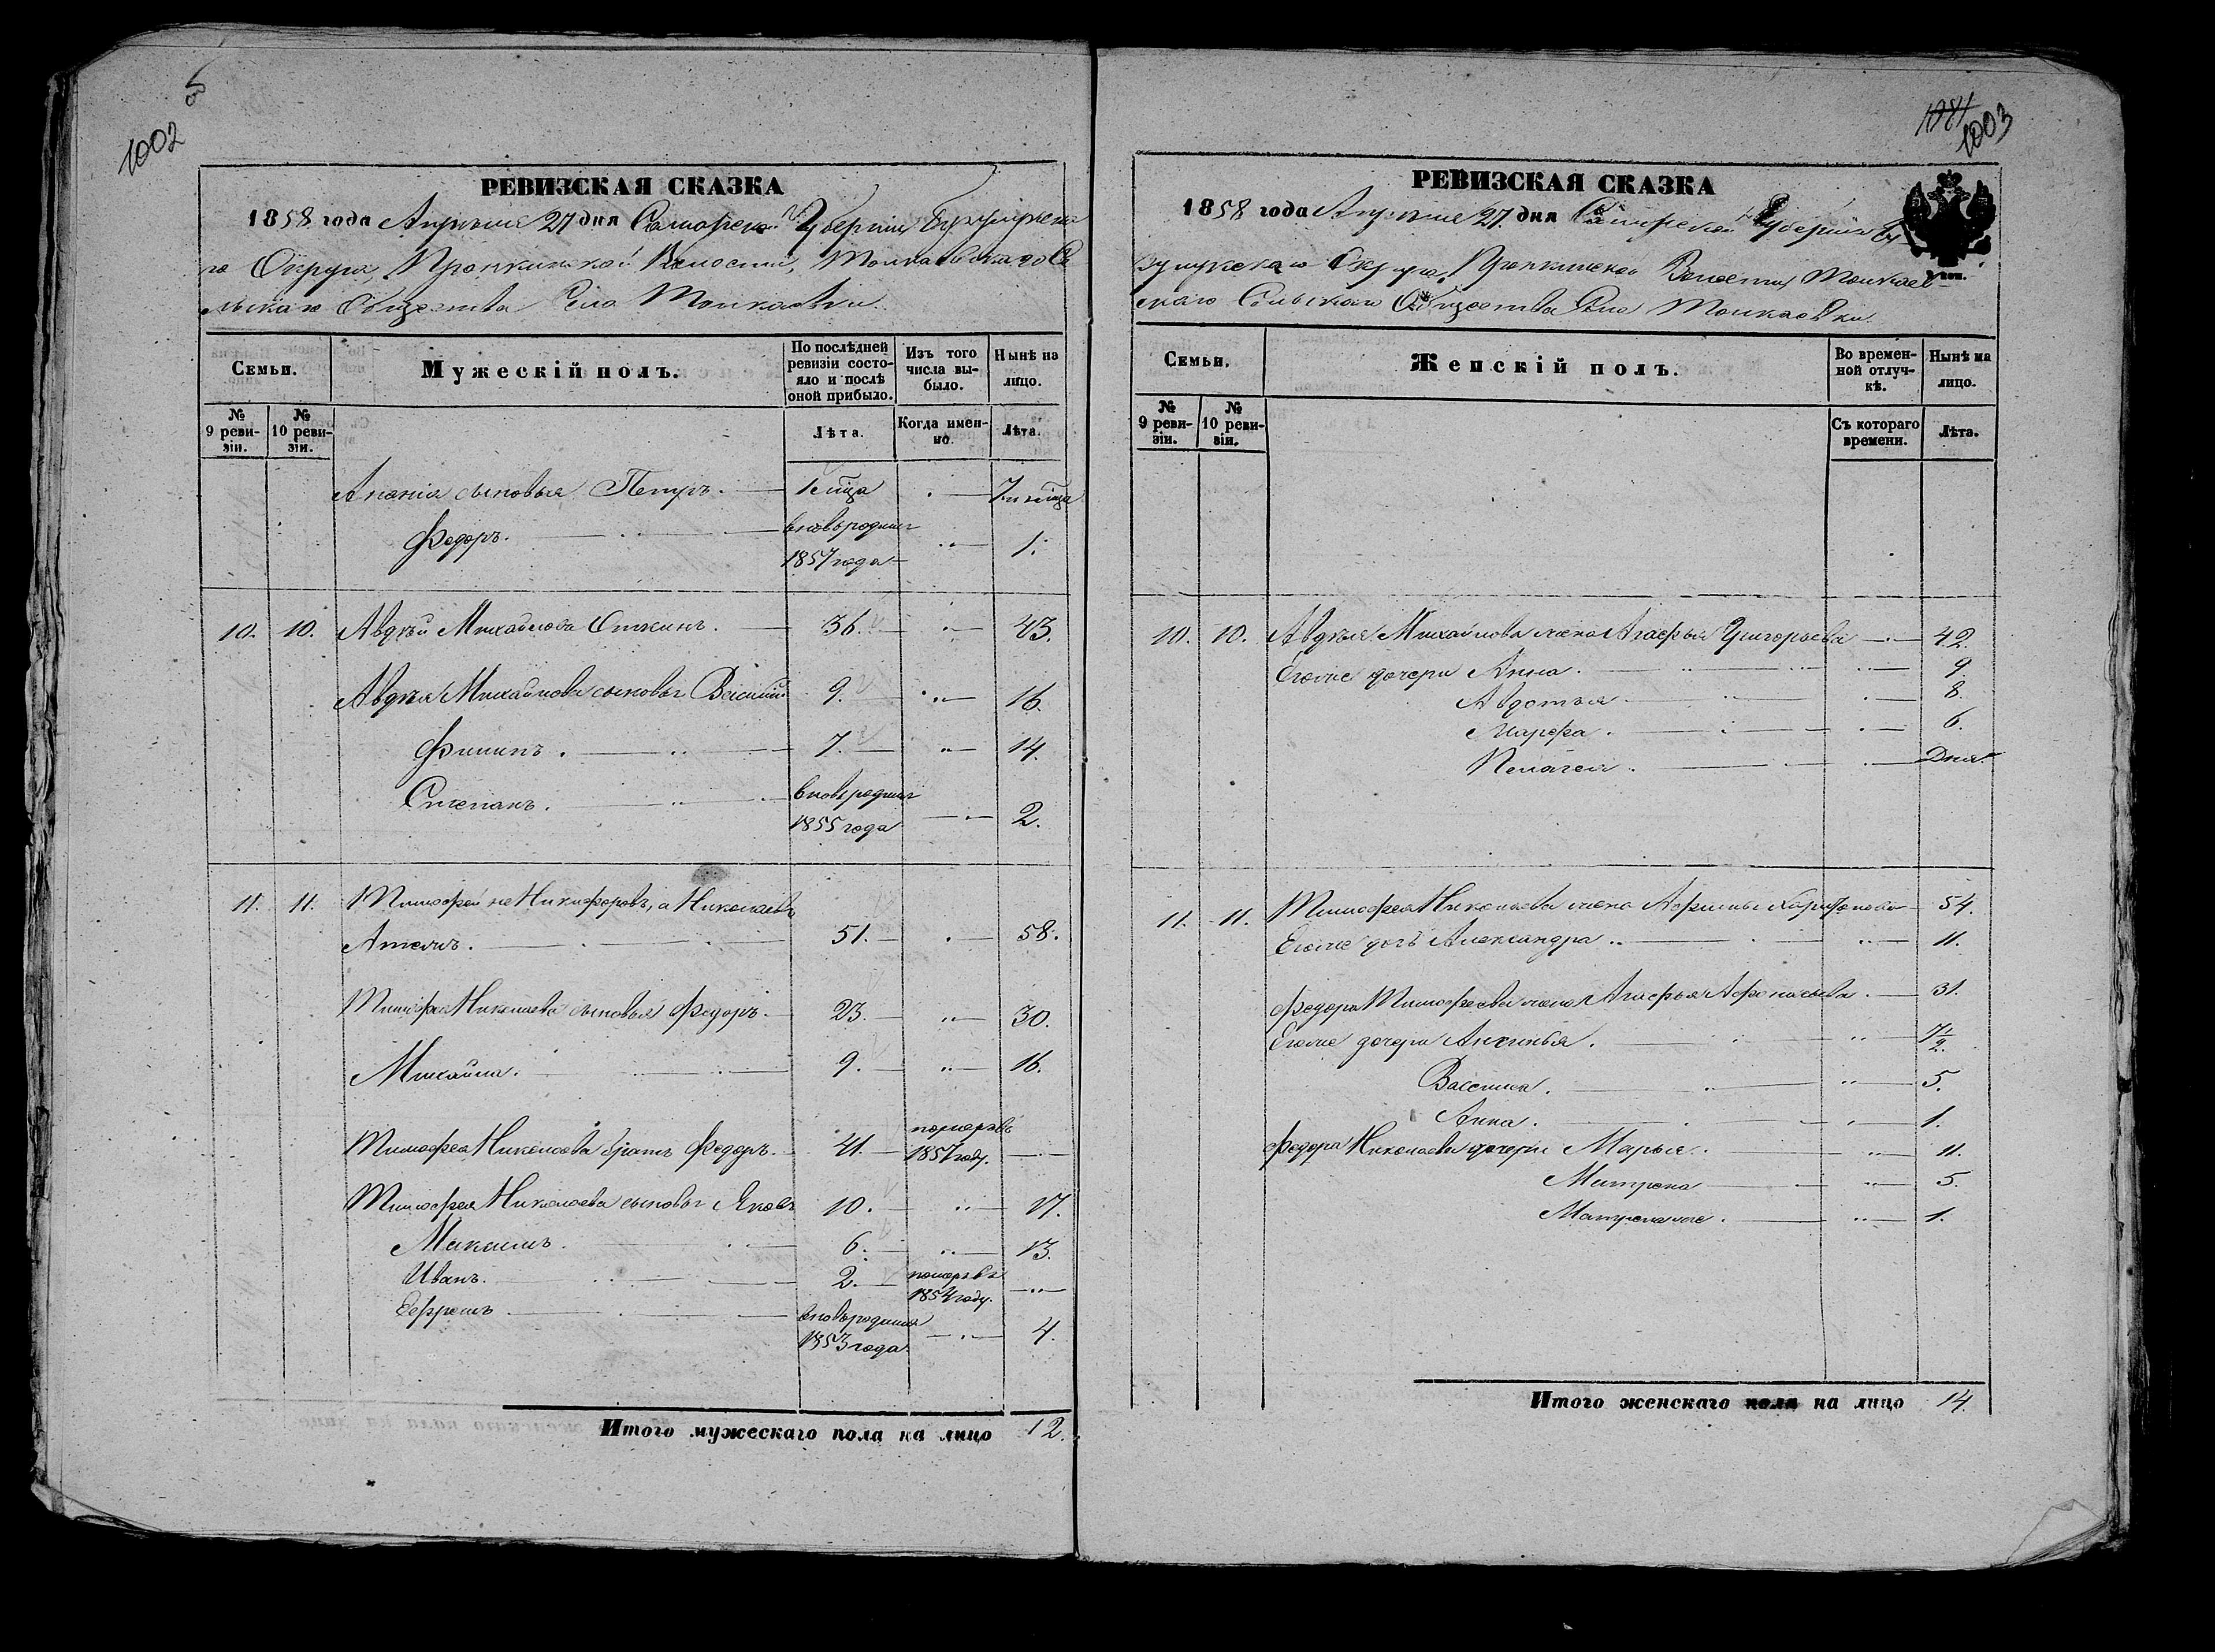 1002
РЕВИЗСКАЯ СКАЗКА
1858 года Апреля 27 дня Самарской Губернии Бузулукска
го Округа, Пронкинской Волости, Толкаевскаго Се
льскаго Общества Села Толкаевки.
Семьи.
Мужескій полъ.
По послѣдней ревизіи состо-
яло и послѣ
оной прибыло.
Изъ того
числа вы-
было.
Нынѣ на
лицо.
№
9 реви-
зіи.
№
10 реви-
зіи.
Лѣта.
Когда имен-
но.
Лѣта.
Анания сыновья Петръ.
Федоръ. вновь родился 1857 года 1.
10. 10. Авдѣй Михайловъ 36. 43.
Авдѣя Михайлова сыновья Василий 9. 16.
Филипъ. 7. 14.
Степанъ. вновь родился 1855 года 2.
11. 11. Тимофей не Никифоровъ, а Николаевъ
51. 58.
Тимофея Николаева сыновья Федоръ. 23. 30.
Михайла. 9. 16.
Тимофея Николаева братъ Федоръ. 41. померъ въ 1857 году.
Тимофея Николаева сыновья Яковъ 10. 17.
Максимъ. 6. 13.
Иванъ. 2. померъ въ 1854 году.
Ефремъ вновь родился 1853 года 4.
Итого мужескаго пола на лицо 12.
1081
1003
РЕВИЗСКАЯ СКАЗКА
1858 года Апреля 27 дня Самарской Губернии Бу
зулукскаго Округа, Пронкинской Волости Толкаев
скаго Сельскаго Общества Села Толкаевки.
Семьи.
Женскій полъ.
Во времен-
ной отлуч-
кѣ.
Нынѣ на
лицо.
№
9 реви-
зіи.
№
10 реви-
зіи.
Съ котораго
времени.
Лѣта.
10. 10. Авдѣя Михайлова жена Агафья Григорьева 42.
Егоже дочери Анна. 9.
Авдотья. 8.
Марфа. 6.
Пелагея. Дня.
11. 11. Тимофея Николаева жена Афимья Харитонова 54.
Егоже дочь Александра 11.
Федора Тимофеева жена Агафья Афонасьева. 31.
Егоже дочери Аксинья. 7 1/2.
Василиса. 5.
Анна. 1.
Федора Николаева дочери Марья. 11.
Матрена 5.
Матрена же. 1.
Итого женскаго пола на лицо 14.